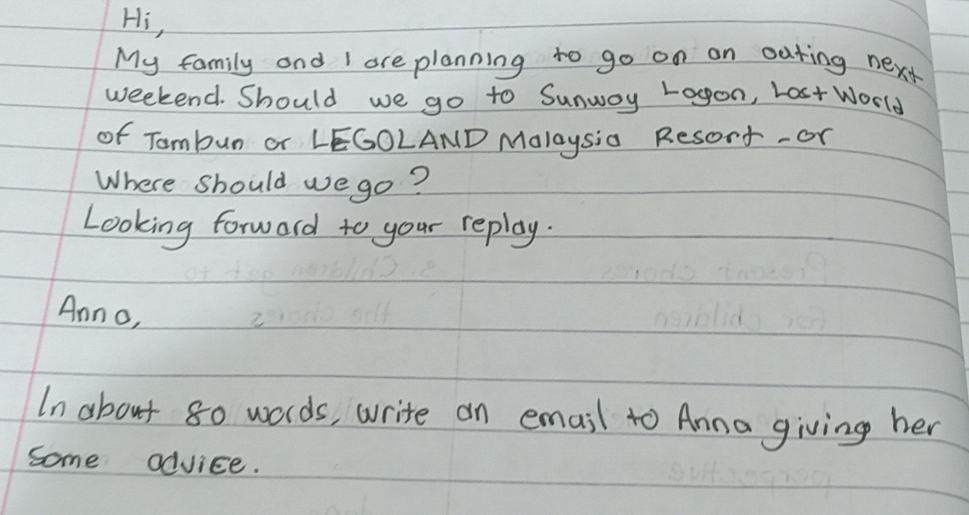 Hi,
My family and I are planning to go on an outing next
weekend. Should we go to Sunway Lagon, Lost World
of Tambun or LEGOLAND Malaysia Resort - or
Where should we go?
Looking forward to your replay.
Anna,
In about 80 words, write an email to Anna giving her
some advice.